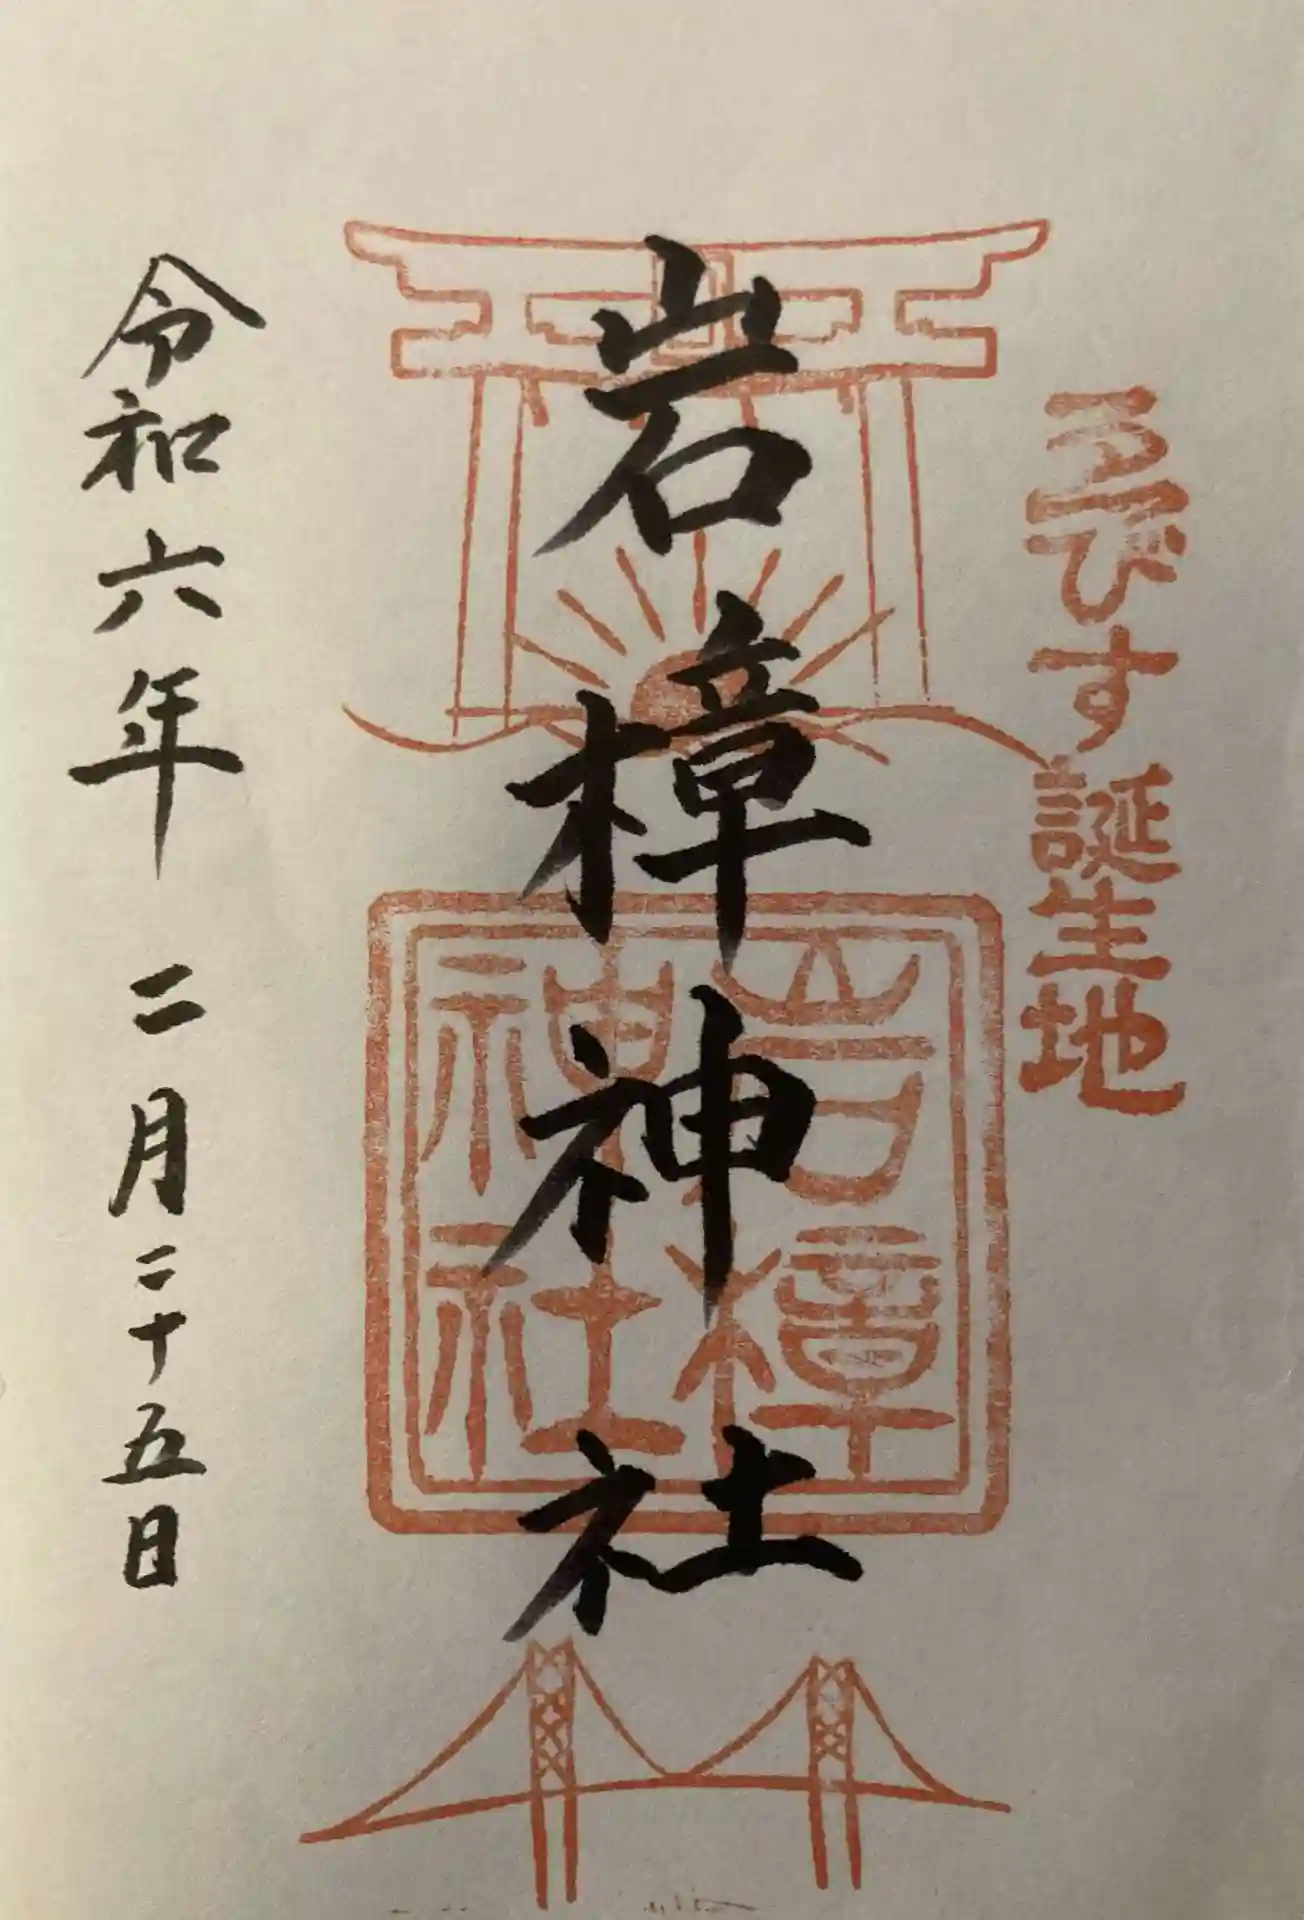 ゑびす誕生地
岩樟神社
岩樟
神社
令和六年二月二十五日